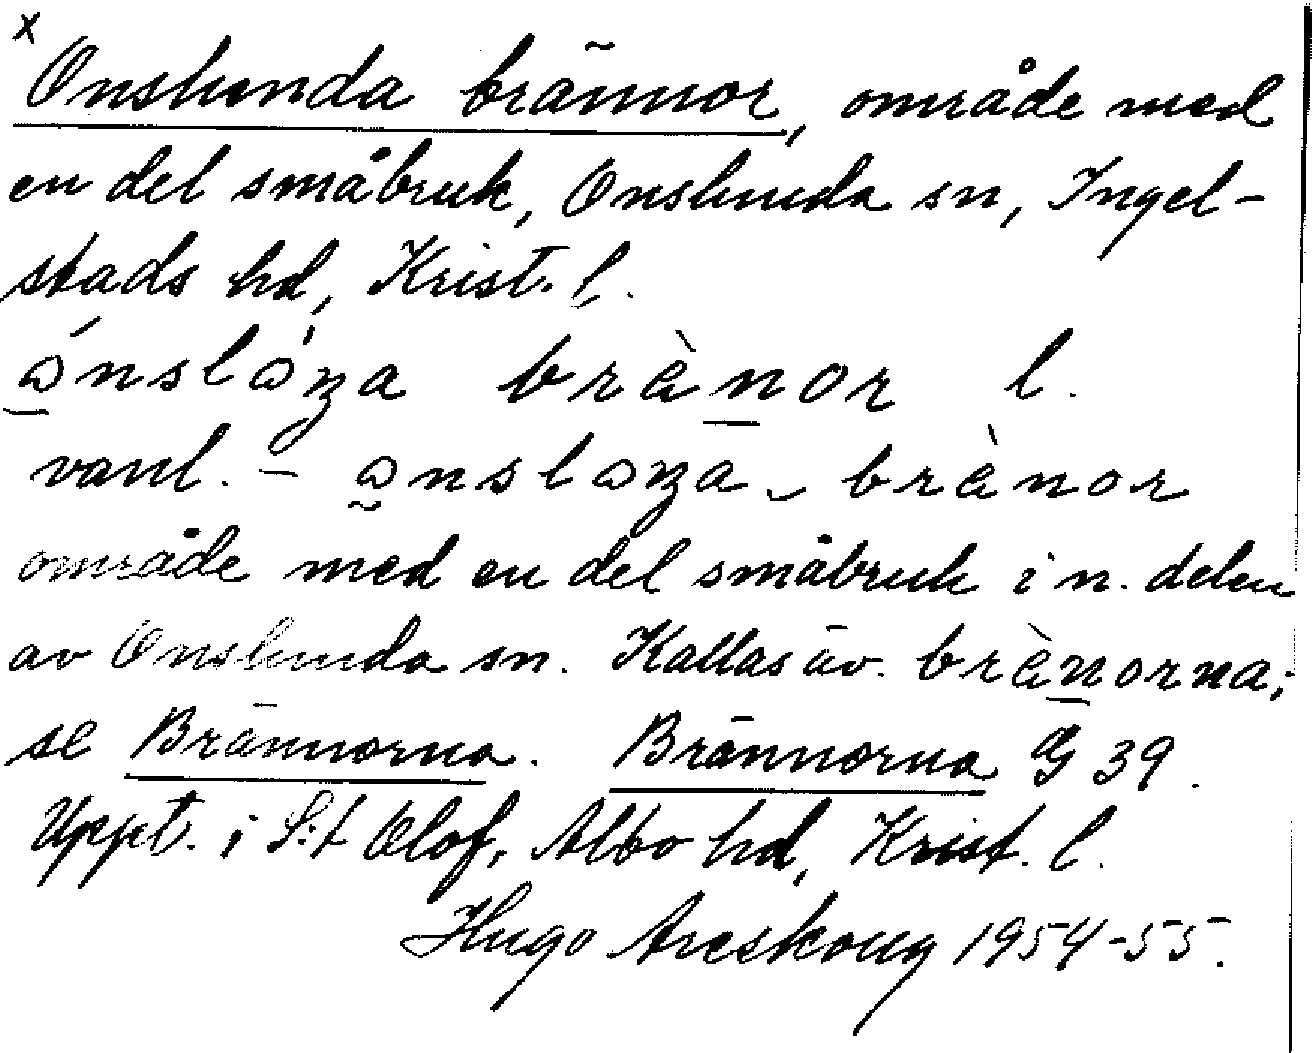 x
Onslunda brännor, område med
en del småbruk, Onslunda sn, Ingel-
stads hd, Krist. l.
l.
vanl. –
område med en del småbruk i n. delen
av Onslunda sn. Kallas äv.
se Brännorna. Brännorna G 39.
Uppt. i S:t Olof, Albo hd, Krist. l.
Hugo Areskoug 1954-55.